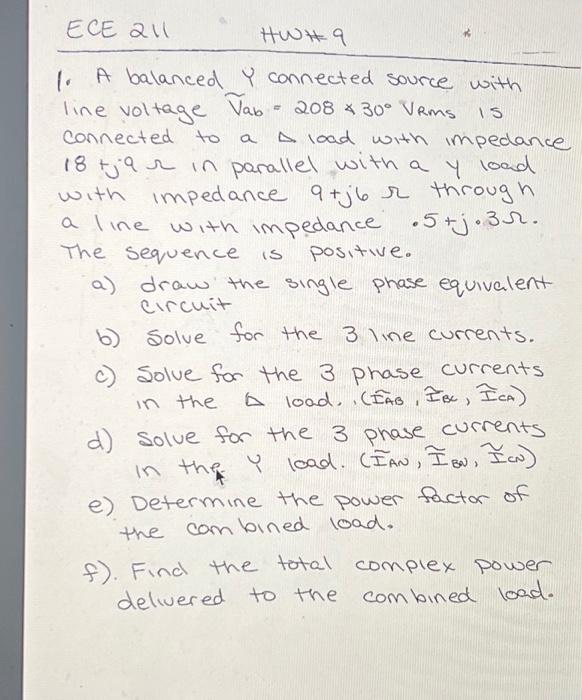 ECE 211 HW# 9
1. A balanced Y connected source with
line voltage Ṽab = 208 ∠ 30° VRMS is
connected to a Δ load with impedance
18 + j9 Ω in parallel with a y load
with impedance 9 + j6 Ω through
a line with impedance .5 + j.3 Ω.
The sequence is positive.
a) draw the single phase equivalent
circuit
b) Solve for the 3 line currents.
c) Solve for the 3 phase currents
in the Δ load. (ĨAB, ĨBC, ĨCA)
d) Solve for the 3 phase currents
in the Y load. (ĨAN, ĨBN, ĨCN)
e) Determine the power factor of
the combined load.
f). Find the total complex power
delivered to the combined load.